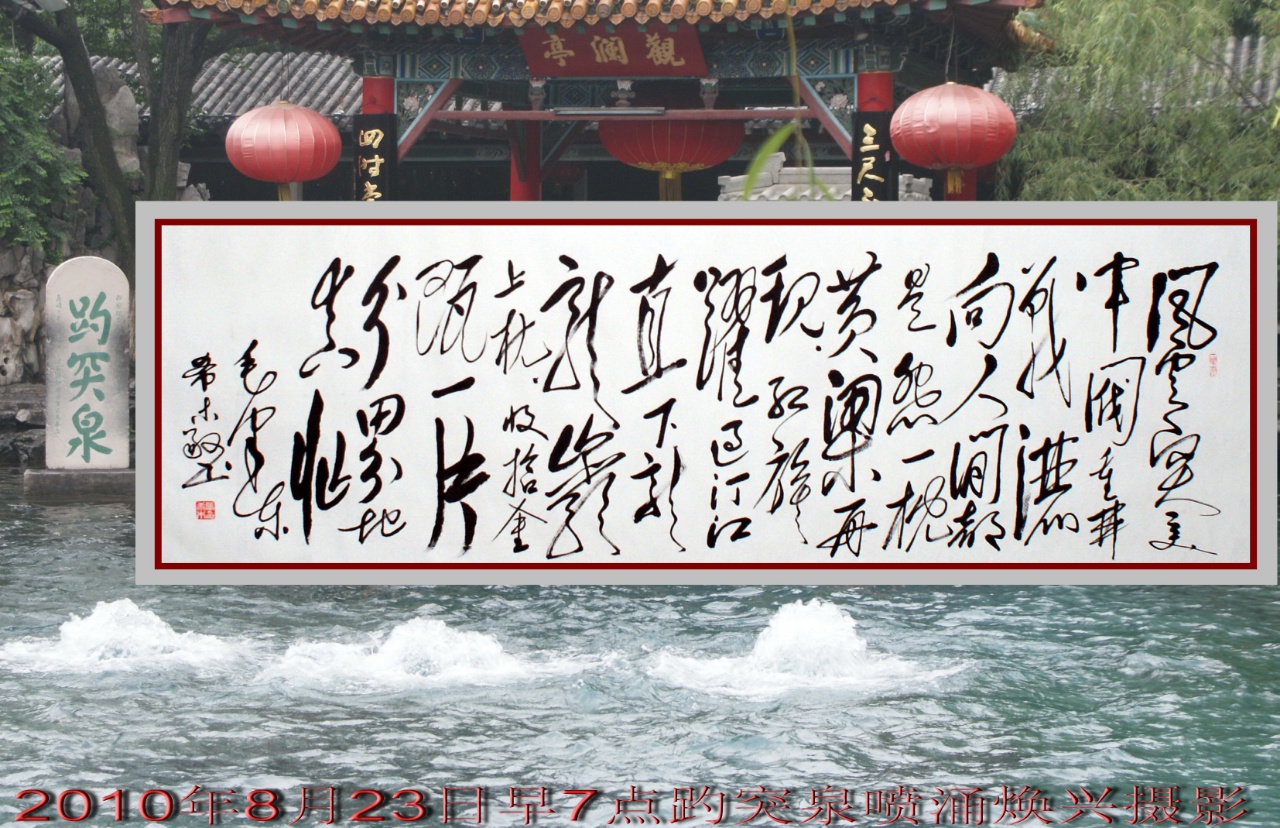 觀瀾亭
四时
三尺
趵突泉
風雲突變
軍閥重開
戰洒
向人間都
是怨一枕
黄粱再
現紅旗
躍過汀江
直下龍
龍巖
上杭收拾金
甌一片
分田分地
真忙
毛澤東
2010年8月23日早7点趵突泉喷涌焕兴摄影